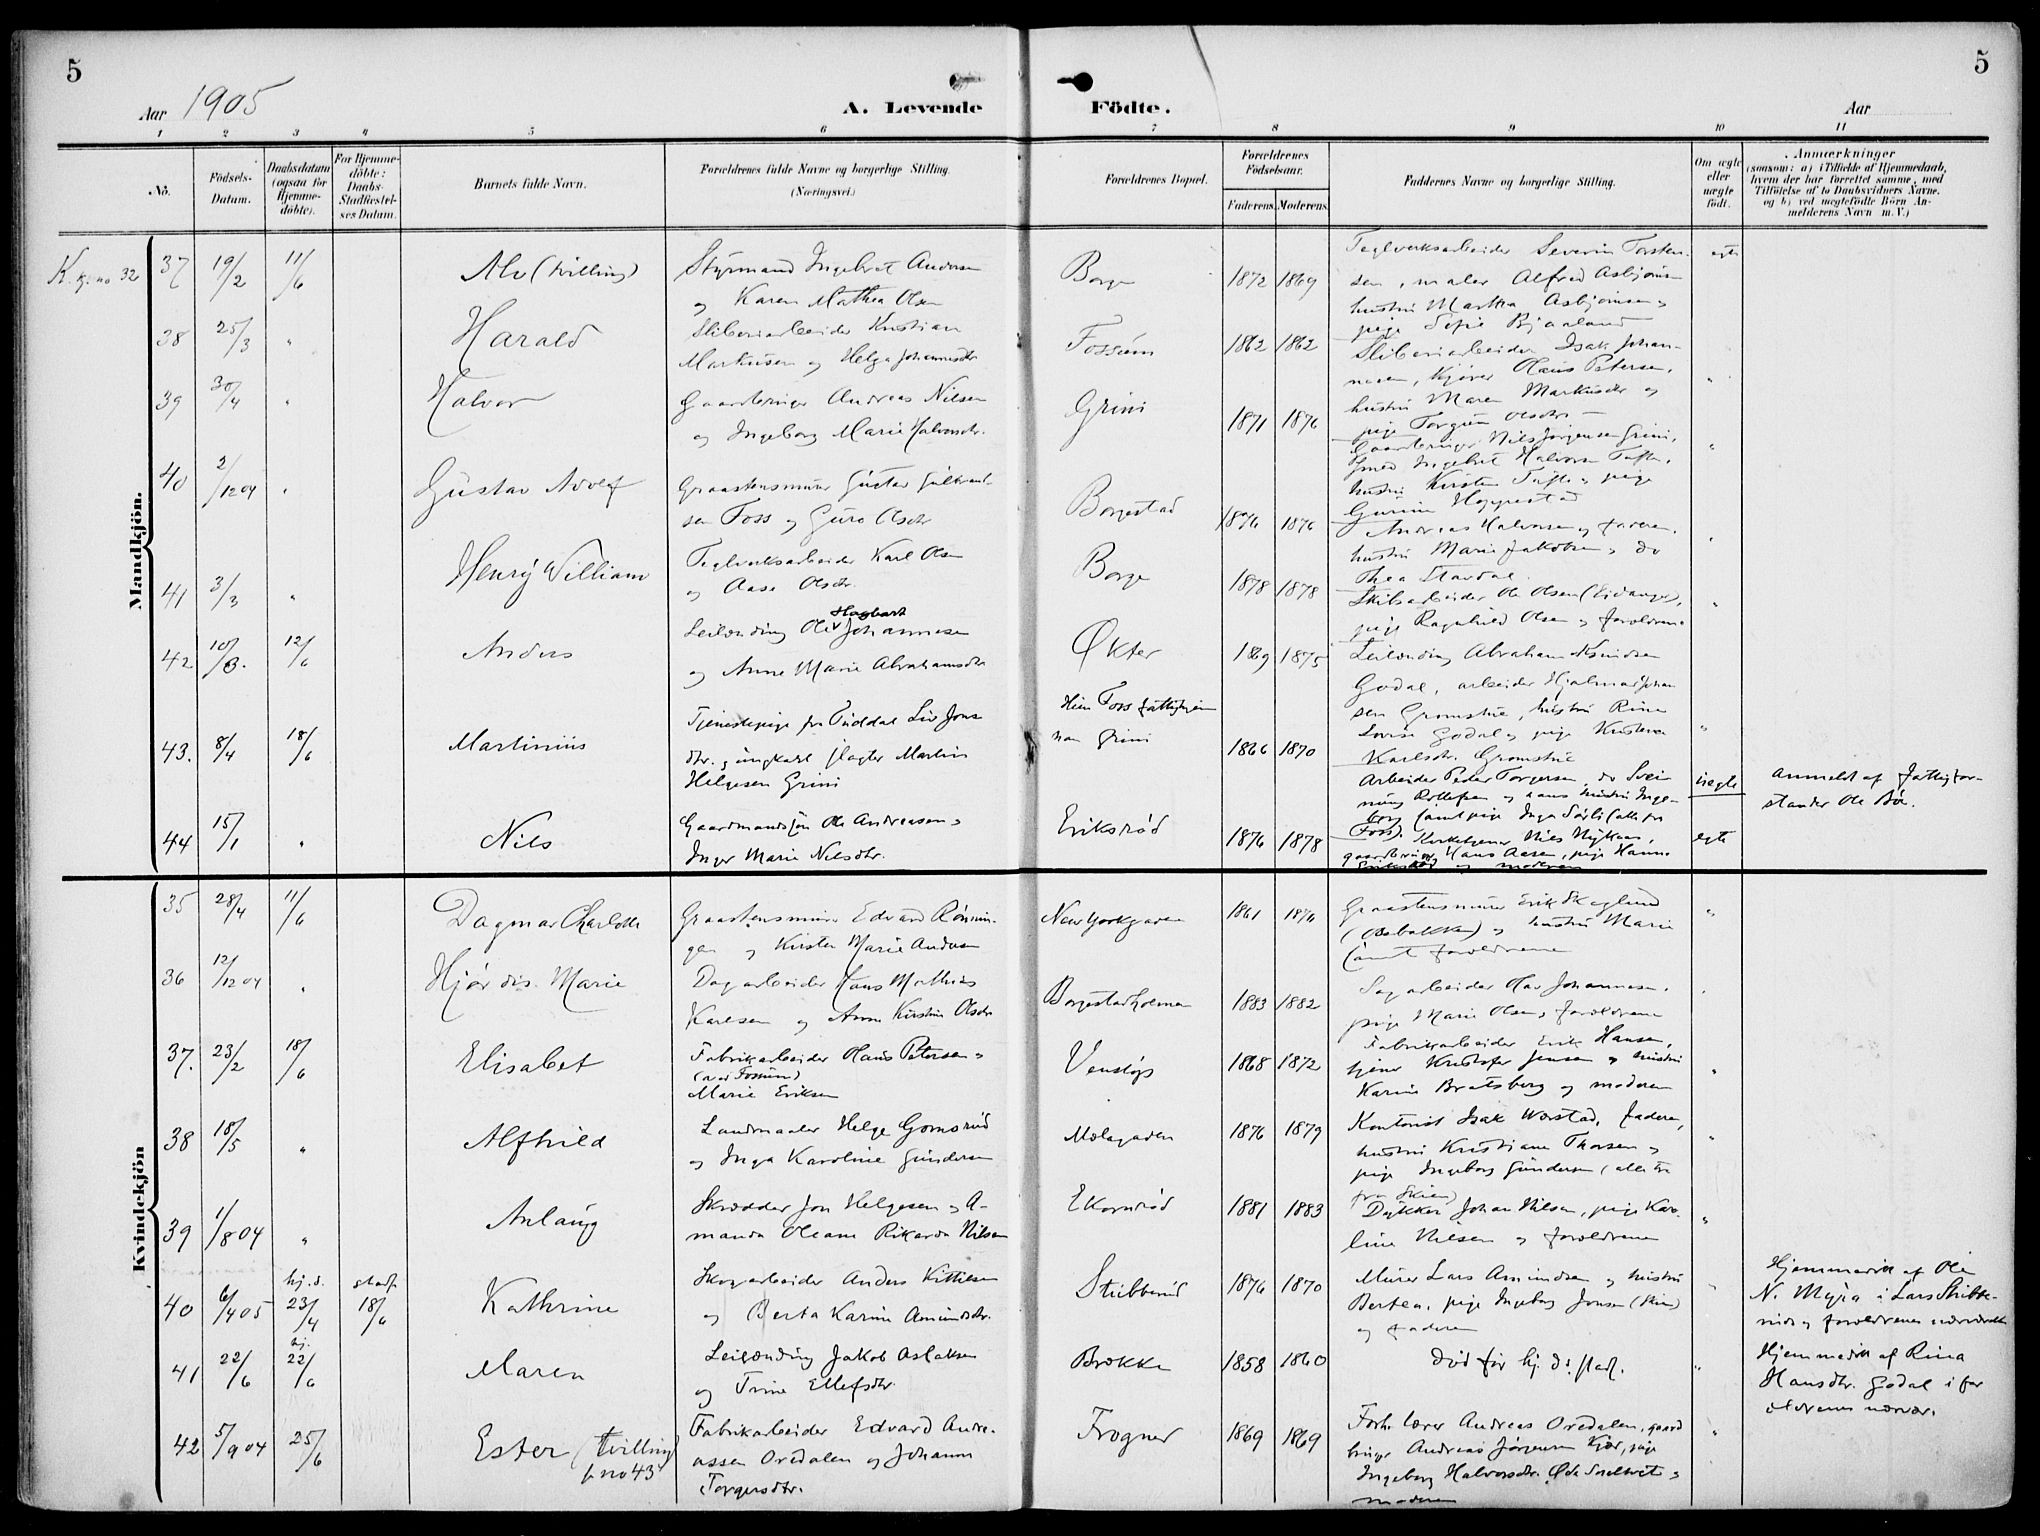 5
5
Aar 1905
A. Levende
Födte.
Aar
1 2 3 4 5 6 7 8 9 10 11
No.
Födsels-
Datum.
Daabsdatum
(ogsaa for
Hjemme-
döbte).
For Hjemme-
döbte:
Daabs-
Stadfæstel-
ses Datum.
Barnets fulde Navn.
Forældrenes fulde Navne og borgerlige Stilling.
(Næringsvei.)
Forældrenes Bopæl.
Forældrenes
Födselsaar.
Faderens.
Moderens.
Faddernes Navne og borgerlige Stilling.
Om ægte
eller
uægte
födt.
Anmærkninger
(saasom: a) i Tilfælde af Hjemmedaab,
hvem der har forrettet samme, med
Tilföielse af to Daabsvidners Navne.
og b) ved uægtefödte Börn An-
melderens Navn m. V.)
Mandkjön.
K. g. no 32
37 19/2 11/6
Alv (tvilling)
Styrmand Ingebret Andersen
og Karen Mathea Olsen
Borge
1872 1869
Teglverksarbeider Severin Torsten-
sen, maler Alfred Asbjörnsen
hustru Martha Asbjörnsen,
pige Sofie Bjaaland
egte
38 25/3 "
Harald
Sliberiarbeider Kristian
Markussen og Helga Johannesdtr.
Fossum
1862 1862
Sliberiarbeider Isak Johan-
nesen, Kjører Olaus Petersen,
hustru Maren Markusdtr og
pige Torgun Olsdtr.
"
39 30/4 "
Halvor
Gaardbruger Andreas Nilsen
og Ingeborg Marie Halvorsdtr.
Grini
1871 1876
Gaardbruger Nils Jörgensen Grini,
Smed Ingebret Halvorsen Tufte,
hustru Kirsten Tufte og pige
Gurine Hoppestad
"
40 2/12 04 "
Gustav Adolf
Graastensmurer Gustav Gulbrand-
sen Foss og Guro Olsdtr
Borgestad
1876 1876
Andreas Halvorsen og faderen,
hustru Marie Jakobsen, do
Thea Stavdal.
"
41 3/3 "
Henry William
Teglverksarbeider Karl Olsen
og Aase Olsdtr.
Borge
1878 1878
Skibsarbeider Ole Olsen (Eidanger),
pige Ragnhild Olsen og forældrene
"
42 10/3. 12/6
Anders
Leilænding Ole Hagbart Johannesen
og Anne Marie Abrahamsdtr
Økter
1869 1875
Leilænding Abraham Knudsen
Godal, arbeider Hjalmar Johan
sen Gromstue, hustru Rina
Lovise Godal og pige Kristense
Karlsdtr. Gromstue
"
43. 8/4 18/6
Martinius
Tjenestepige fra Tuddal Liv Jons
dtr. og ungkarl slagter Martin
Helgesen Grini
Hun Foss fattighjem
han Grini
1866 1870
Arbeider Peder Torgersen, do Svei-
nung Rolleffsen og hans hustru Inge-
borg samt pige Inga Sørli (alle fra
Foss).
uegte
Anmeldt af fattigfor-
stander Ole Bö.
44 15/1 "
Nils
Gaardmandssön Ole Andreasen og
Inger Marie Nilsdtr.
Eriksröd
1876 1878
Kirketjener Nils Nykaas,
gaardbruger Hans Aasen, pige Hanna
Eriksröd og moderen
egte
Kvindekjön
35 28/4 11/6
Dagmar Charlotte
Graastensmurer Edvard Rönnin-
gen og Kirsten Marie Andersen
New Yorkgaden
1861 1876
Graastensmurer Erik Skoglund
(Osebakken) og hustru Marie
samt forældrene
"
36 12/12 04 "
Hjørdis Marie
Dagarbeider Hans Mathias
Karlsen og Anne Kirstine Olsdtr
Borgestadholmen
1883 1882
Sagarbeider Olav Johannesen,
pige Marie Olsen, forældrene
37. 23/2 18/6
Elisabet
Fabrikarbeider Olaus Petersen og
(ved Fossum)
Marie Eriksen
Venstöp
1868 1872
Fabrikarbeider Erik Hansen,
tjener Kristofer Jensen og hustru
Karine Bratsberg og moderen
"
38 18/5 "
Alfhild
Landmaaler Helge Gomsrud
og Inga Karoline Gundersen
Mælagaden
1876 1879
Kontorist Isak Worstad, faderen,
hustru Kristiane Thorsen og
pige Ingeborg Gundersen (alle tre
fra Skien)
"
39 1/8 04 "
Aslaug
Skrædder Jon Helgesen og A-
manda Oleane Rikarda Nilsen
Ekornröd
1881 1883
Dykker Johan Nilsen, pige Karo-
line Nilsen og forældrene
"
40 6/4 05
hj. d.
23/4
stadf.
18/6
Kathrine
Skogarbeider Anders Kittilsen
og Berta Karine Amundsdtr.
Stibberud
1876 1870
Murer Lars Amundsen og hustru
Bertea, pige Ingeborg Jonsen (Skien)
og faderen
"
Hjemmedöbt af Ole
N. Myra i Lars Stibbe-
ruds og forældrenes nærværelse
41 22/6
hj.
22/6
Maren
Leilænding Jakob Aslaksen
og Trine Ellefsdtr.
Brække
1858 1860
Död før hj. d: stadf.
"
Hjemmedöbt af Rina
Hansdtr. Godal i for
ældrenes nærvær.
42 5/9 04 25/6
Ester (tvilling
f. no 43
Fabrikarbeider Edvard Andre-
assen Oredalen og Johanne
Torgersdtr.
Frogner
1869 1869
Forh. lærer Andreas Oredalen, gaard
bruger Andreas Jörgensen Kjær, pige
Ingeborg Halvorsdtr. Øde Smeltvet og
moderen
"